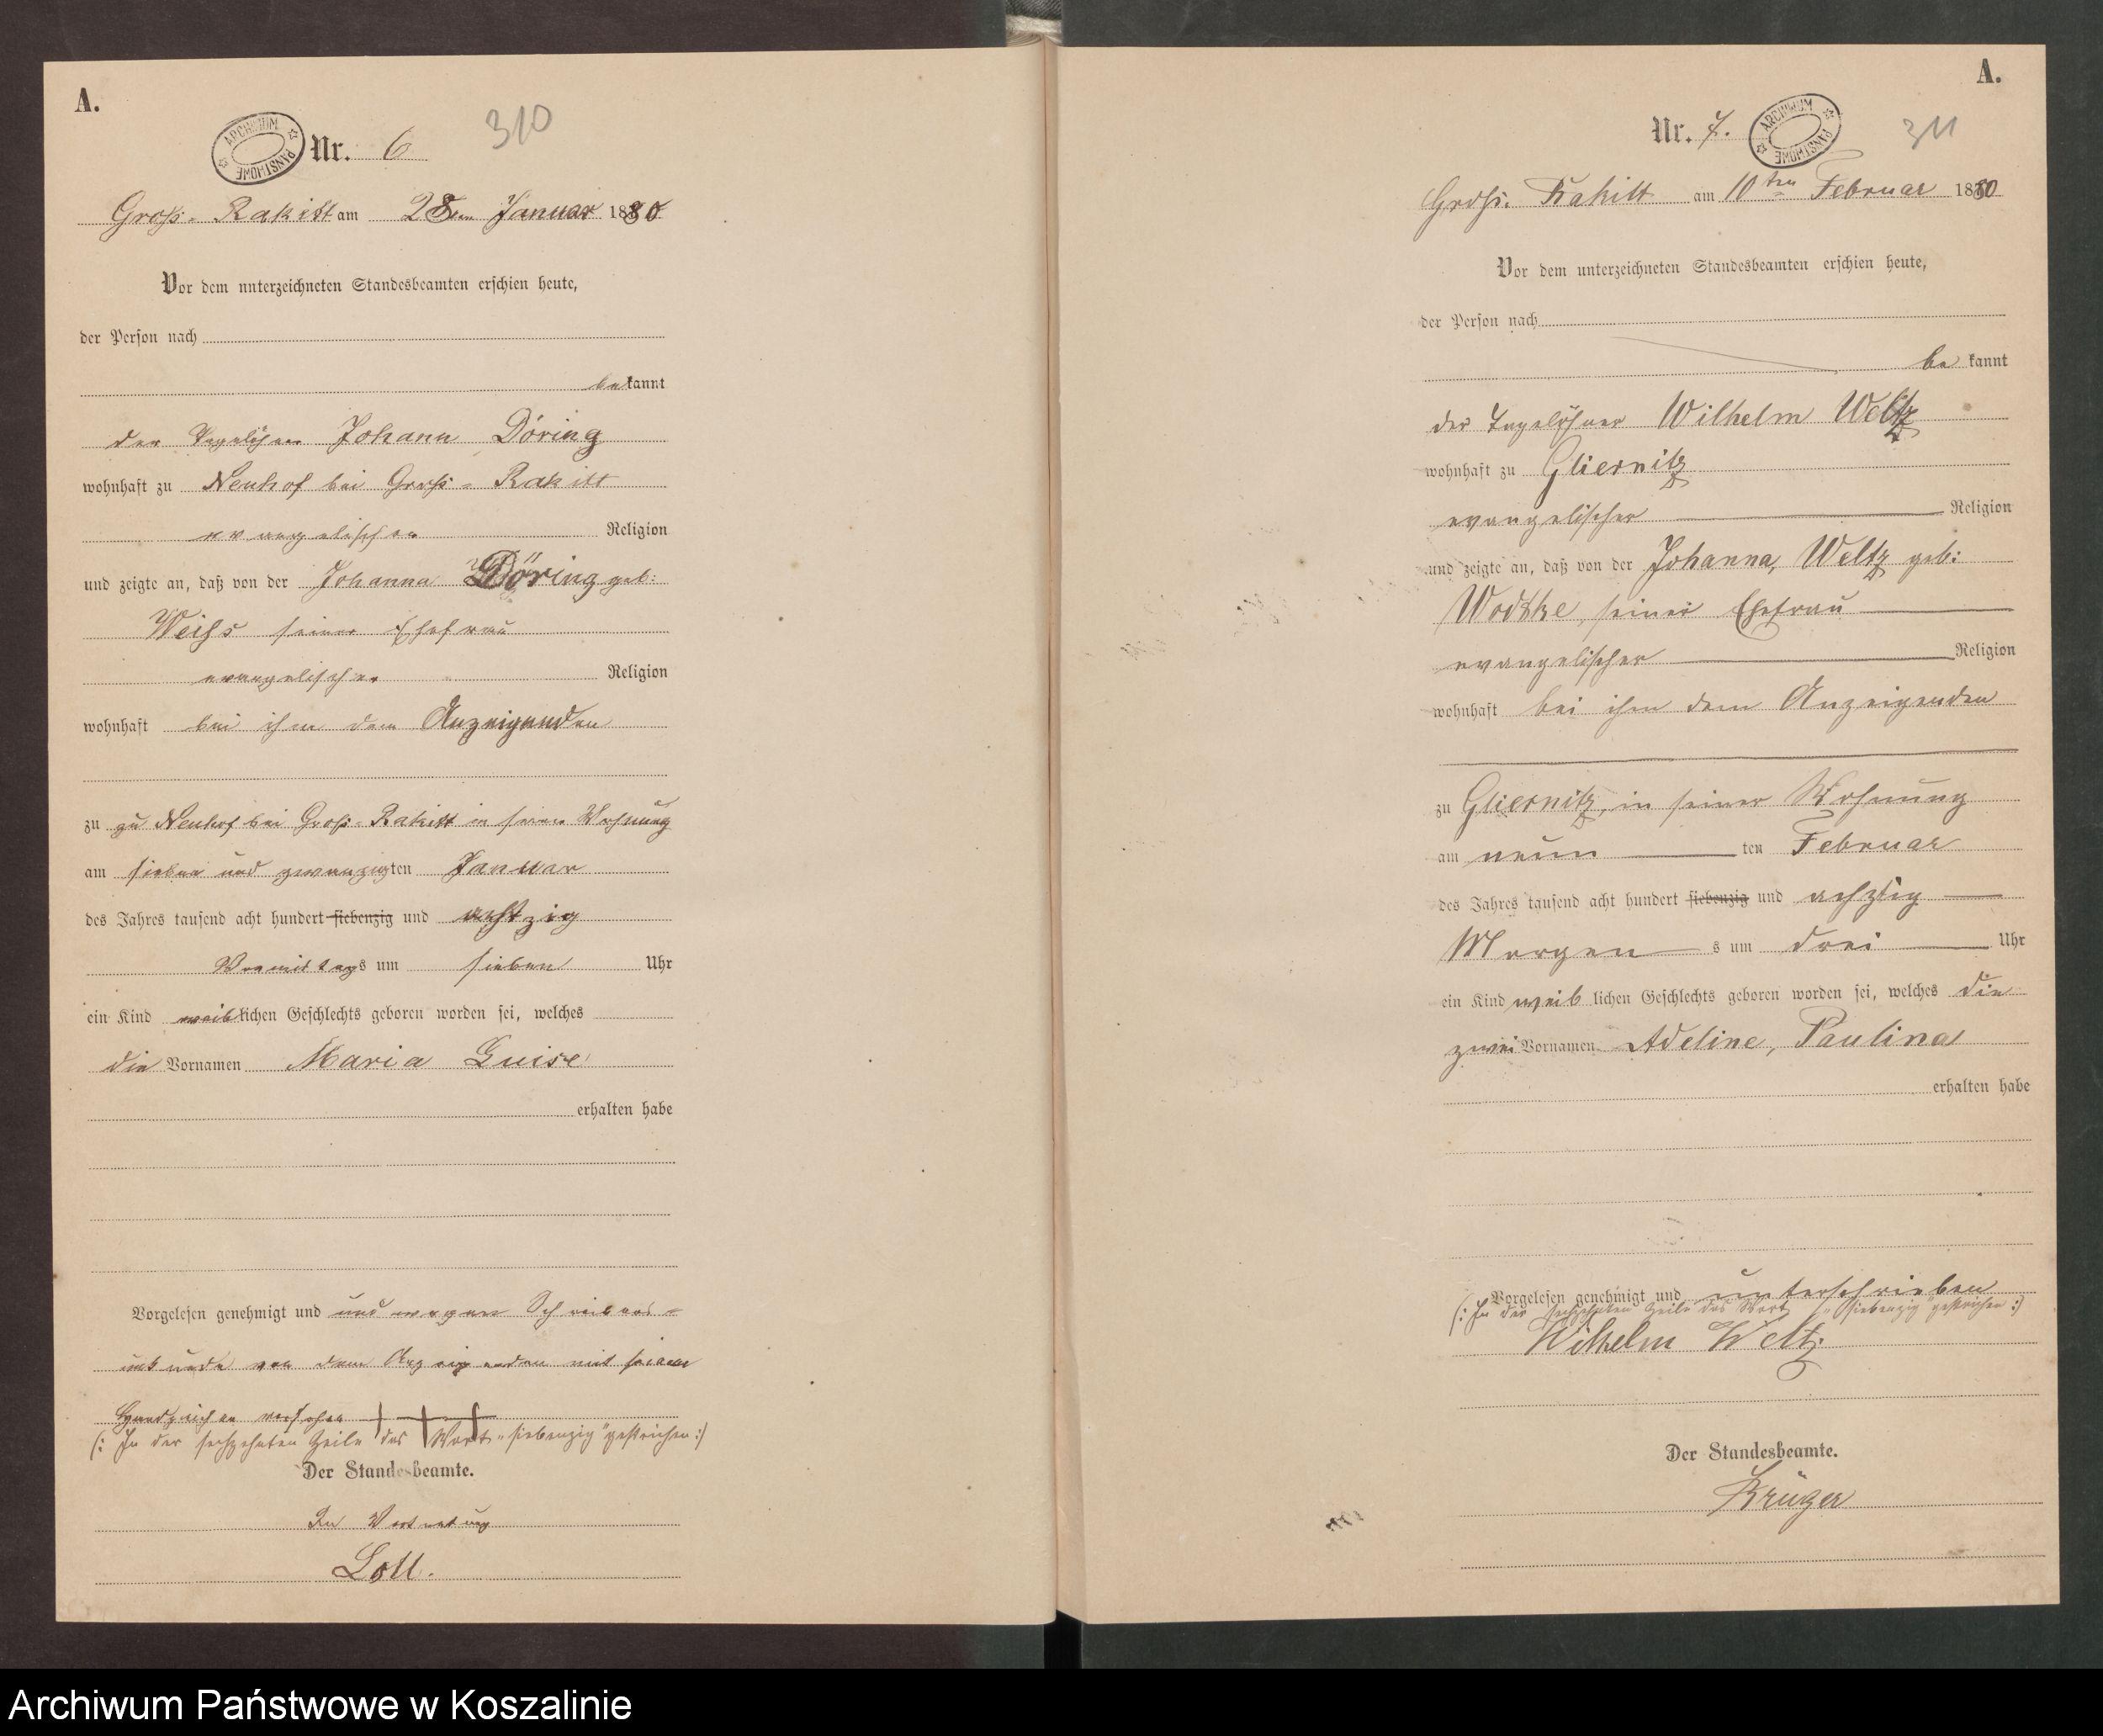 A.
ARCHIWUM PAŃSTWOWE
Nr. 6
310
Groß-Rakitt am 28ten Januar 1880
Vor dem unterzeichneten Standesbeamten erschien heute,
der Person nach
bekannt
der Tagelöhner Johann Döring
wohnhaft zu Neuhof bei Groß-Rakitt
evangelischer Religion
und zeigte an, daß von der Johanna Döring geb:
Weiss seiner Ehefrau
evangelischer Religion
wohnhaft bei ihm dem Anzeigenden
zu zu Neuhof bei Groß-Rakitt in seiner Wohnung
am sieben und zwanzigten Januar
des Jahres tausend acht hundert siebenzig und achtzig
Vormittags um sieben Uhr
ein Kind weiblichen Geschlechts geboren worden sei, welches
die Vornamen Maria Luise
erhalten habe
Vorgelesen genehmigt und und wegen Schreibens-
unkunde von dem Anzeigenden mit seinem
Handzeichen versehen +++
(: In der sechzehnten Zeile das Wort „siebenzig" gestrichen :)
Der Standesbeamte.
In Vertretung
Loll.
A.
Nr. 7.
ARCHIWUM PAŃSTWOWE
311
Gross. Rakitt am 10ten Februar 1880
Vor dem unterzeichneten Standesbeamten erschien heute,
der Person nach
be kannt
der Tagelöhner Wilhelm Weltz
wohnhaft zu Gliernitz
evangelischer Religion
und zeigte an, daß von der Johanna, Weltz geb:
Wodtke, seiner Ehefrau
evangelischer Religion
wohnhaft bei ihm dem Anzeigenden
zu Gliernitz, in seiner Wohnung
am neun ten Februar
des Jahres tausend acht hundert siebenzig und achzig
Morgen s um drei Uhr
ein Kind weib lichen Geschlechts geboren worden sei, welches die
zwei Vornamen Adeline, Paulina
erhalten habe
Vorgelesen genehmigt und unterschrieben
(: In der sechzehnten Zeile das Wort „siebenzig" gestrichen :)
Wilhelm Weltz
Der Standesbeamte.
Krüger
Archiwum Państwowe w Koszalinie